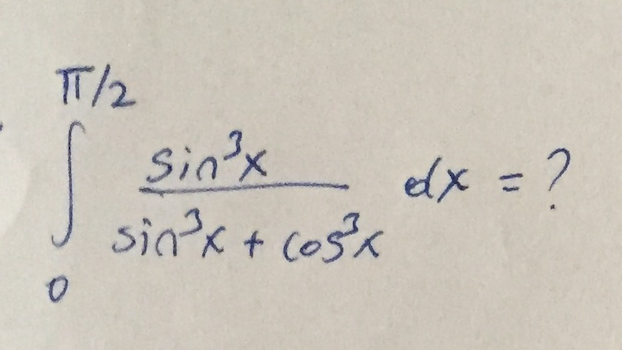 π/2
∫ sin³x / (sin³x + cos³x) dx = ?
0